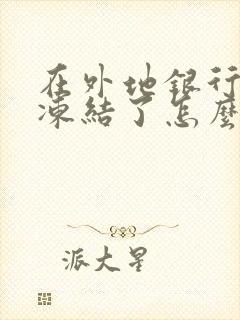 在外地銀行
凍結了怎麼
派大星